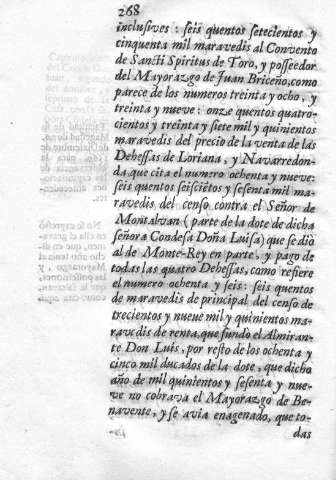 268
inclusives : seis quentos setecientos y
cinquenta mil maravedis al Convento
de Sancti Spiritus de Toro, y posseedor
del Mayorazgo de Juan Briceño, como
parece de los numeros treinta y ocho, y
treinta y nueve : onze quentos quatro-
cientos y treinta y siete mil y quinientos
maravedis del precio de la venta de lās
Dehessas de Loriana, y Navarredon-
da, que cita el numero ochenta y nueve:
seis quentos seisciētos y sesenta mil ma-
ravedis del censo contra el Señor de
Montalvan (parte de la dote de dicha
señora Condesa Doña Luisa) que se diò
al de Monte-Rey en parte, y pago de
todas las quatro Dehessas, como refiere
el numero ochenta y seis: seis quentos
de maravedis de principal del censo de
trecientos y nueue mil y quinientos ma-
ravedis de renta, que fundò el Almiran-
te Don Luis, por resto de los ochenta y
cinco mil ducados de la dote, que dicho
año de mil quinientos y sesenta y nue-
ve no cobrava el Mayorazgo de Be-
navente, y se avia enagenado, que to-
das